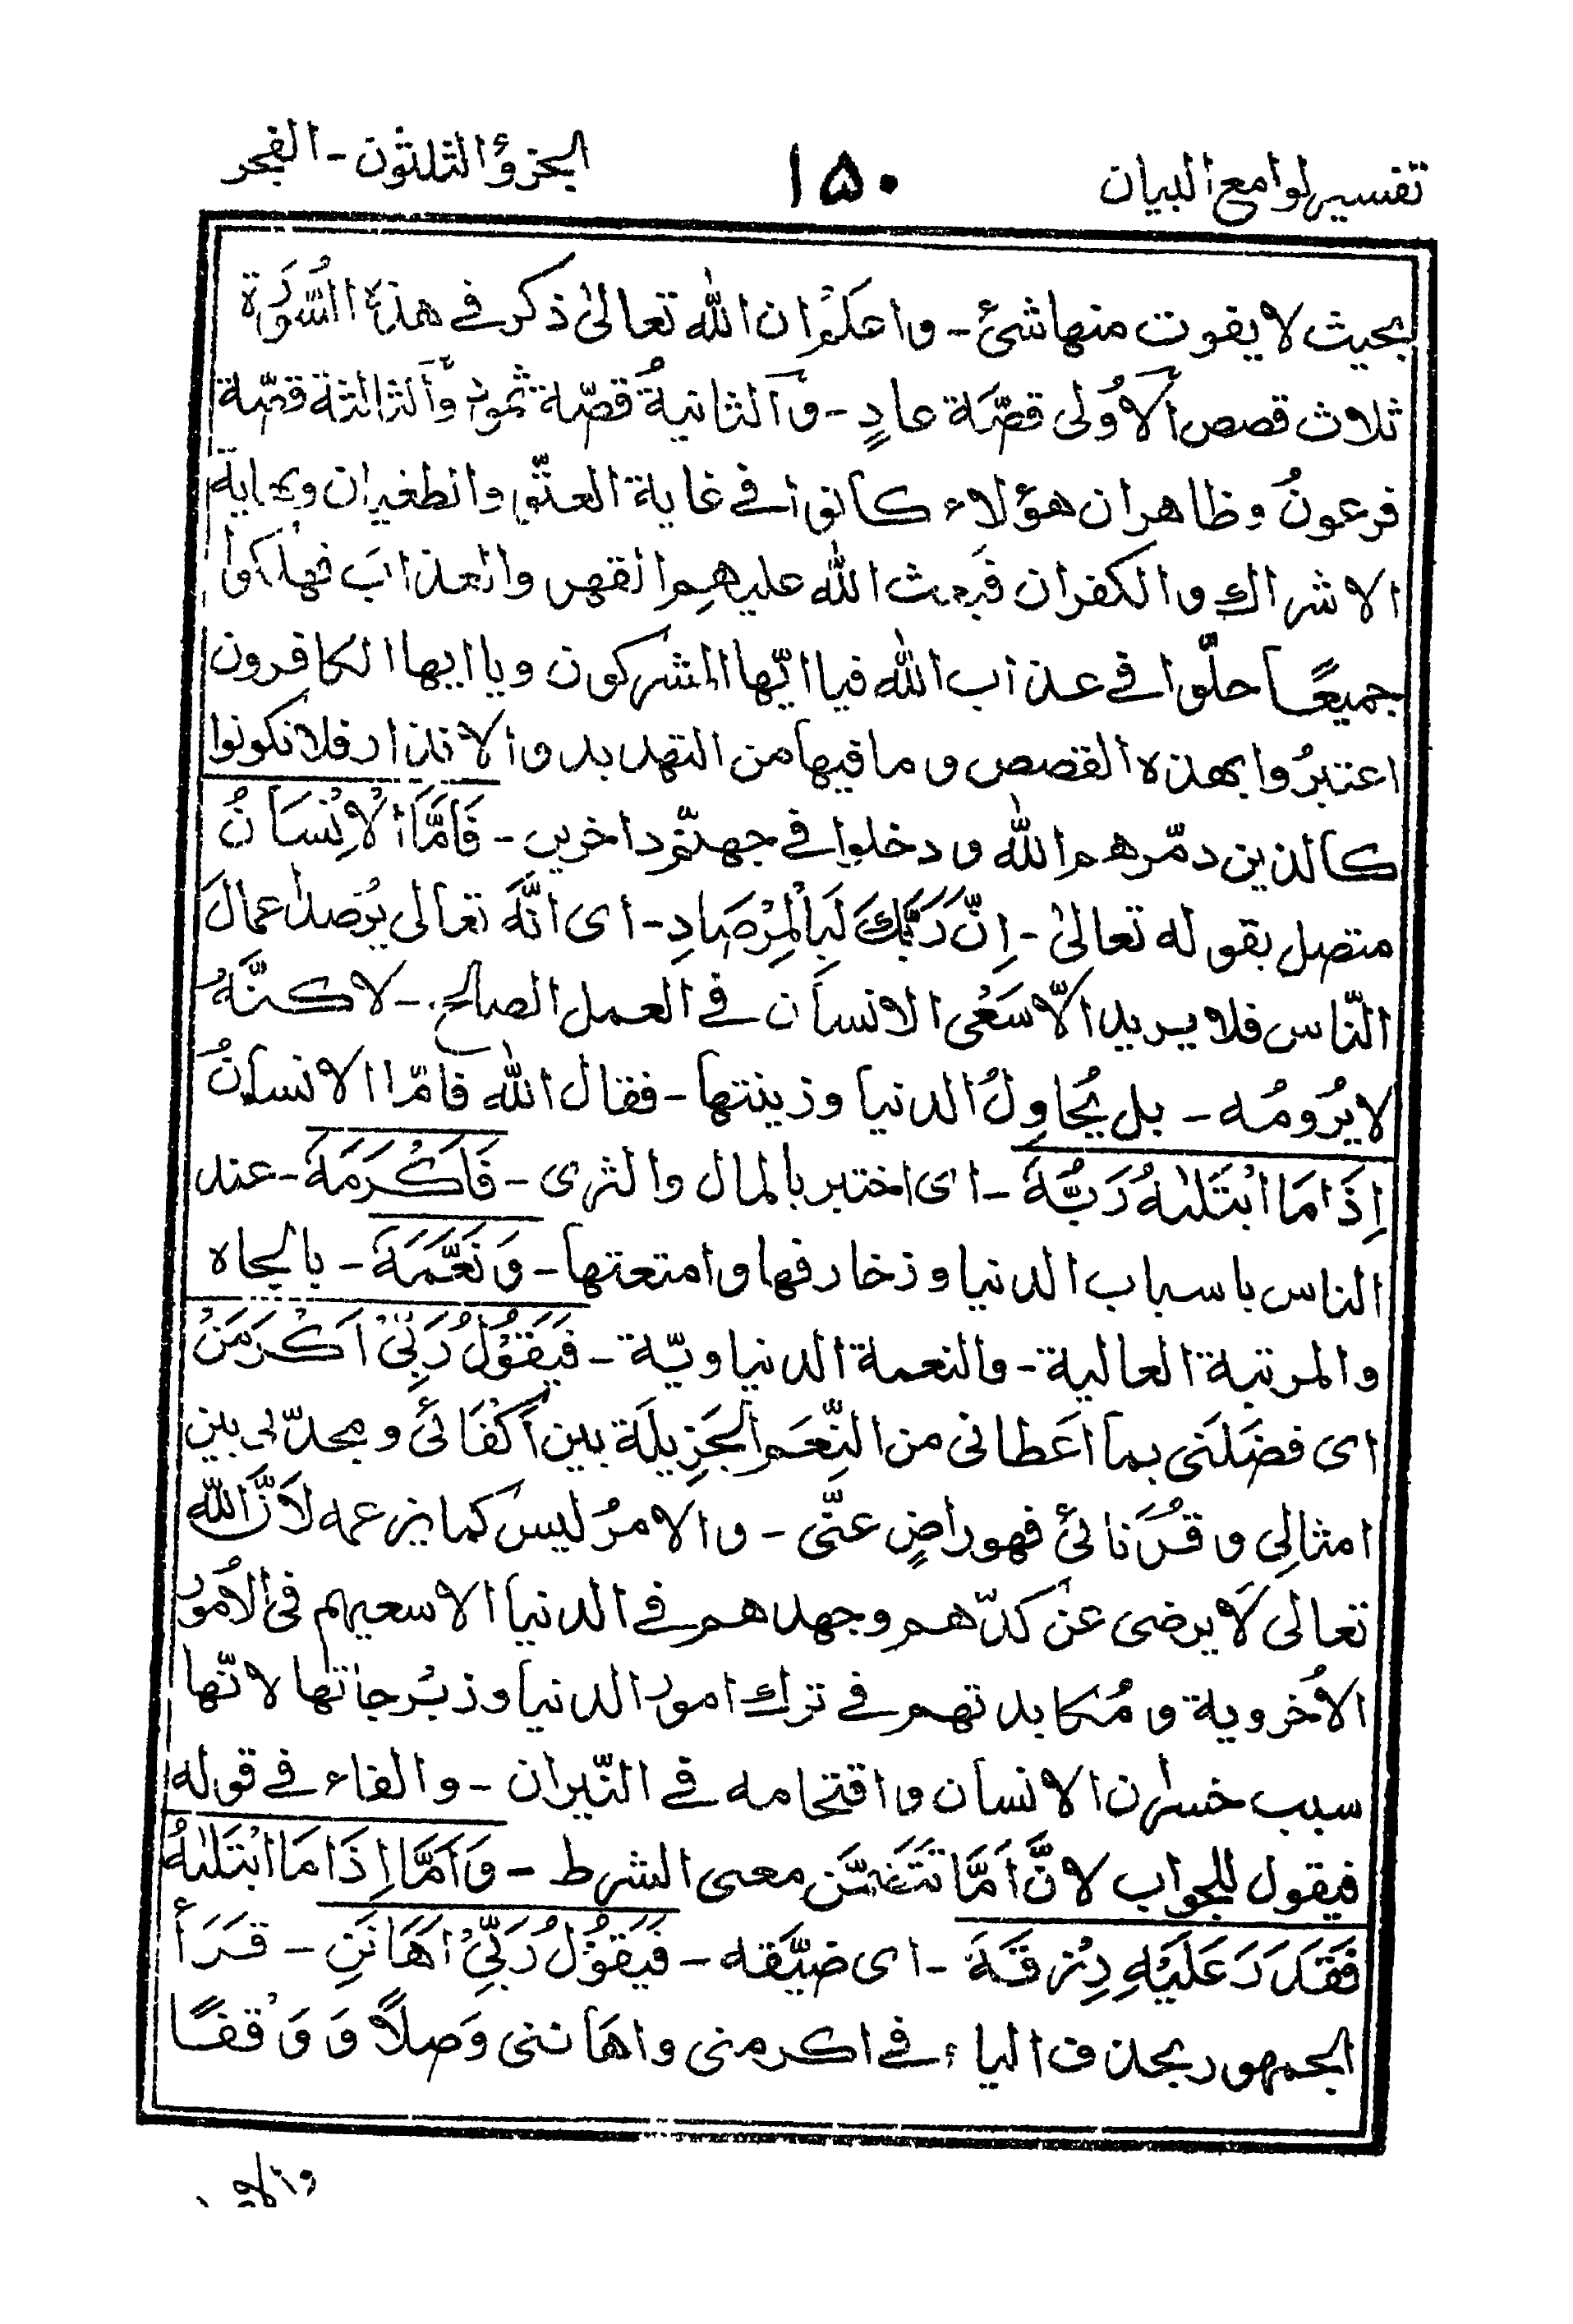 تفسير لوامع البيان ١٥٠ الجزؤ الثلثون - الفجر
بحيث لا يفوت منها شئ - واعلم ان الله تعالىٰ ذكر في هذه السُّورَة
ثلاث قصص الاُولى قصّة عادٍ - والثانيةُ قصّة ثمود والثالثة قصّة
فرعونُ وظاهر ان هؤلاء كانوا في غاية العتّو والطغيان ونهاية
الاشراك والكفران فَبعث الله عليهم القهر والعذابَ فهلكوا
جميعًا حلّوا في عذاب الله فيا ايّها المشركون ويا ايها الكافرون
اعتبرُوا بهذه القصص وما فيها من التهديد والانذار فلا تكونوا
كالذين دمّرهم الله ودخلوا في جهنّم داخرين - فَاَمَّا الْاِنْسَانُ
متصل بقوله تعالىٰ - اِنَّ رَبَّكَ لَبِالْمِرْصَادِ - اى انَّهَ تعالى يُرَصد اعمالَ
النّاس فلا يريد الّا سَعْى الانسان في العمل الصالح - لاكنَّهُ
لا يرُومُه - بل يُحاوِلُ الدنيا وزينتها - فقال الله فامّا الانسانُ
اِذَا مَا ابْتَلٰىهُ رَبُّهٗ - اى اختبر بالمال والثرى - فَاَكْرَمَهٗ - عند
الناس باسباب الدنيا وزخارفها وامتعتها - وَنَعَّمَهٗ - بالجاه
والمرتبة العالية - والنعمة الدنياويّة - فَيَقُوْلُ رَبِّىْ اَكْرَمَنْ
اى فضَلَنى بما اعَطانى من النِّعَم الجَزِيلَة بين اَكْفَائى ومجدّنى بين
امثالِى وقُرَنائى فهو راضٍ عنّى - والامرُ ليس كما يزعمه لاَنَّ الله
تعالى لا يرضى عن كدّهم وجهدهم في الدنيا الا سعيهم فى الاُمور
الاُخروية ومُكابدتهم في ترك امور الدنيا وزبُرجاتها لانّها
سبب خسران الانسان واقتحامه في النّيران - والفاء في قوله
فيقول للجواب لانَّ اَمَّا تَتَضمَّن معنى الشرط - وَاَمَّا اِذَا مَا ابْتَلٰىهُ
فَقَدَرَ عَلَيْهِ رِزْقَهٗ - اى ضيّقه - فَيَقُوْلُ رَبِّىْ اَهَانَنِ - قَرَأَ
الجمهور بحذف الياء في اكرمنى واهاننى وَصلاً وَوَقفًا